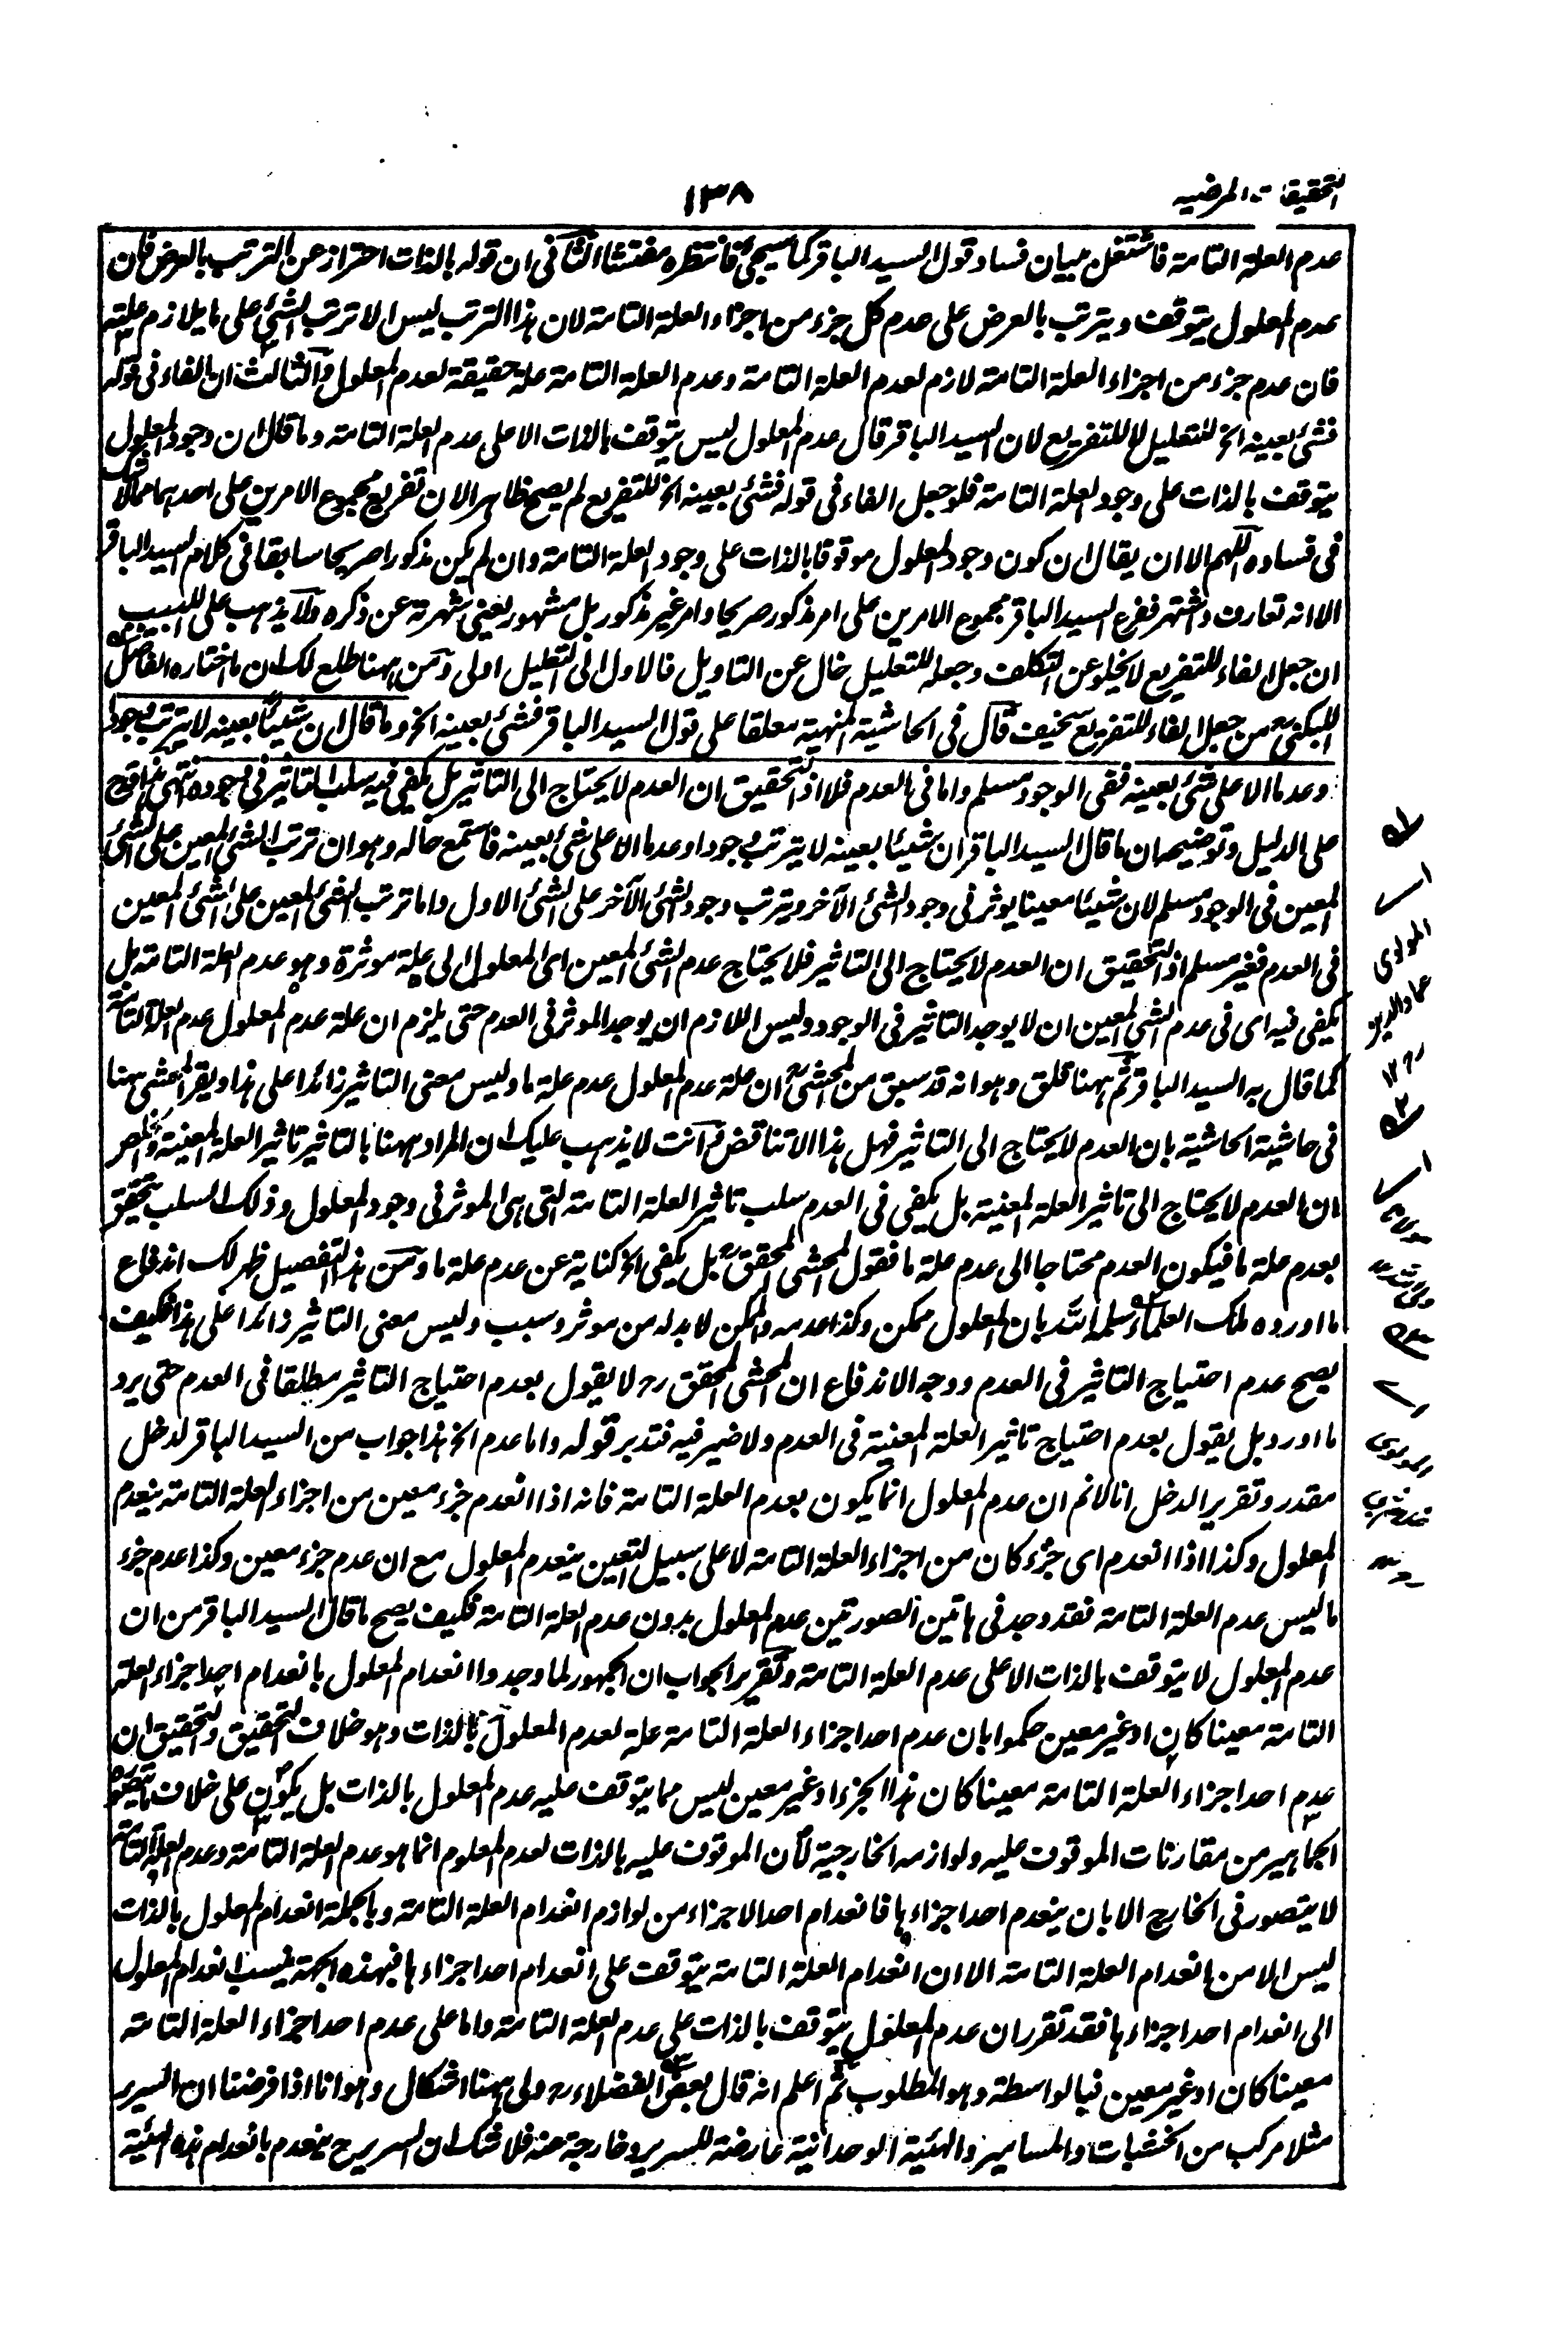 التحقيقات المرضيه
١٣٨
عدم العلة التامة فاشتغل ببيان فساد قول السيد الباقر كما سيجئ فانتظره مفتشا الثانى ان قوله بالذات احتراز عن الترتب بالعرض فان
عدم المعلول يتوقف ويترتب بالعرض على عدم كل جزء من اجزاء العلة التامة لان هذا الترتب ليس الا ترتب الشئ على ما يلازم علته
فان عدم جزء من اجزاء العلة التامة لازم لعدم العلة التامة وعدم العلة التامة علة حقيقة لعدم المعلول والثالث ان الفاء فى قوله
فشئ بعينه الخ للتعليل لا للتفريع لان السيد الباقر قال عدم المعلول ليس يتوقف بالذات الا على عدم العلة التامة وما قال ان وجود المعلول
يتوقف بالذات على وجود العلة التامة فلو جعل الفاء فى قوله فشئ بعينه الخ للتفريع لم يصح ظاهرا لان تفريع مجموع الامرين على احدهما مما لا شك
فى فساده اللهم الا ان يقال ان كون وجود المعلول موقوفا بالذات على وجود العلة التامة وان لم يكن مذكورا صريحا سابقا فى كلام السيد الباقر
الا انه تعارف واشتهر ففرع السيد الباقر مجموع الامرين على امر مذكور صريحا وامر غير مذكور بل مشهور يغنى شهرته عن ذكره ولا يذهب على اللبيب
ان جعل الفاء للتفريع لا يخلو عن التكلف وجعله للتعليل خال عن التاويل فالاول الى التعليل اولى ومن ههنا طلع لك ان ما اختاره الفاضل
اللبكنى من جعل الفاء للتفريع سخيف قال فى الحاشية المنهية معلقا على قول السيد الباقر فشئ بعينه الخ وما قال ان شيئا بعينه لا يترتب وجودا
وعدما الا على شئ بعينه ففى الوجود مسلم واما فى العدم فلا اذ التحقيق ان العدم لا يحتاج الى التاثير بل يكفى فيه سلب التاثير فى وجوده انتهى
على الدليل وتوضيحه ان ما قال السيد الباقر ان شيئا بعينه لا يترتب وجودا وعدما الا على شئ بعينه فاستمع حاله وهو ان ترتب الشئ المعين على الشئ
المعين فى الوجود مسلم لان شيئا معينا يوثر فى وجود الشئ الآخر ويترتب وجود الشئ الآخر على الشئ الاول واما ترتب الشئ المعين على الشئ المعين
فى العدم فغير مسلم اذ التحقيق ان العدم لا يحتاج الى التاثير فلا يحتاج عدم الشئ المعين اى المعلول الى علة موثرة وهو عدم العلة التامة بل
يكفى فيه اى فى عدم الشئ المعين ان لا يوجد التاثير فى الوجود وليس اللازم ان يوجد الموثر فى العدم حتى يلزم ان علة عدم المعلول عدم العلة التامة
كما قال به السيد الباقر ثم ههنا قلق وهو انه قد سبق من المحشى ان علة عدم المعلول عدم علة ما وليس معنى التاثير زائدا على هذا ويقر المحشى ههنا
فى حاشية الحاشية بان العدم لا يحتاج الى التاثير فهل هذا الا تناقض فانت لا يذهب عليك ان المراد ههنا بالتاثير تاثير العلة المعينة
ان العدم لا يحتاج الى تاثير العلة المعينة بل يكفى فى العدم سلب تاثير العلة التامة التى هى الموثر فى وجود المعلول وذلك السلب يتحقق
بعدم علة ما فيكون العدم محتاجا الى عدم علة ما فقول المحشى المحقق رح بل يكفى الخ كناية عن عدم علة ما ومن هذا التفصيل ظهر لك اندفاع
ما اورده ملك العلماء سلمه الله بان المعلول ممكن وكذا عدمه والممكن لا بد له من موثر وسبب وليس معنى التاثير زائدا على هذا فكيف
يصح عدم احتياج التاثير فى العدم ووجه الاندفاع ان المحشى المحقق رح لا يقول بعدم احتياج التاثير مطلقا فى العدم حتى يرد
ما اورد بل يقول بعدم احتياج تاثير العلة المعينة فى العدم ولا ضير فيه فتدبر قوله واما عدم الخ هذا جواب من السيد الباقر لدخل
مقدر وتقرير الدخل انا لانم ان عدم المعلول انما يكون بعدم العلة التامة فانه اذا انعدم جزء معين من اجزاء العلة التامة ينعدم
المعلول وكذا اذا انعدم اى جزء كان من اجزاء العلة التامة لا على سبيل التعين ينعدم المعلول مع ان عدم جزء معين وكذا عدم جزء
ما ليس عدم العلة التامة فقد وجد فى هاتين الصورتين عدم المعلول بدون عدم العلة التامة فكيف يصح ما قال السيد الباقر من ان
عدم المعلول لا يتوقف بالذات الا على عدم العلة التامة وتقرير الجواب ان الجمهور لما وجدوا انعدام المعلول بانعدام احد اجزاء العلة
التامة معينا كان او غير معين حكموا بان عدم احد اجزاء العلة التامة علة لعدم المعلول بالذات وهو خلاف التحقيق والتحقيق ان
عدم احد اجزاء العلة التامة معينا كان هذا الجزء او غير معين ليس مما يتوقف عليه عدم المعلول بالذات بل يكون على خلاف ما تصوره
الجماهير من مقارنات الموقوف عليه ولوازمه الخارجية لان الموقوف عليه بالذات لعدم المعلوم انما هو عدم العلة التامة وعدم العلة التامة
لا يتصور فى الخارج الا بان ينعدم احد اجزاءها فانعدام احد الاجزاء من لوازم انعدام العلة التامة وبالجملة انعدام المعلول بالذات
ليس الا من انعدام العلة التامة الا ان انعدام العلة التامة يتوقف على انعدام احد اجزاءها فبهذه الجهة ينسب انعدام المعلول
الى انعدام احد اجزاءها فقد تقرر ان عدم المعلول يتوقف بالذات على عدم العلة التامة واما على عدم احد اجزاء العلة التامة
معينا كان او غير معين فبالواسطة وهو المطلوب ثم اعلم انه قال بعض الفضلاء رح ولى ههنا اشكال وهو انا اذا فرضنا ان السرير
مثلا مركب من الخشبات والمسامير والهئية الوحدانية عارضة للسرير وخارجة عنه فلا شك ان السرير ح ينعدم بانعدام هذه الهئية
المولوى
عماد الدين